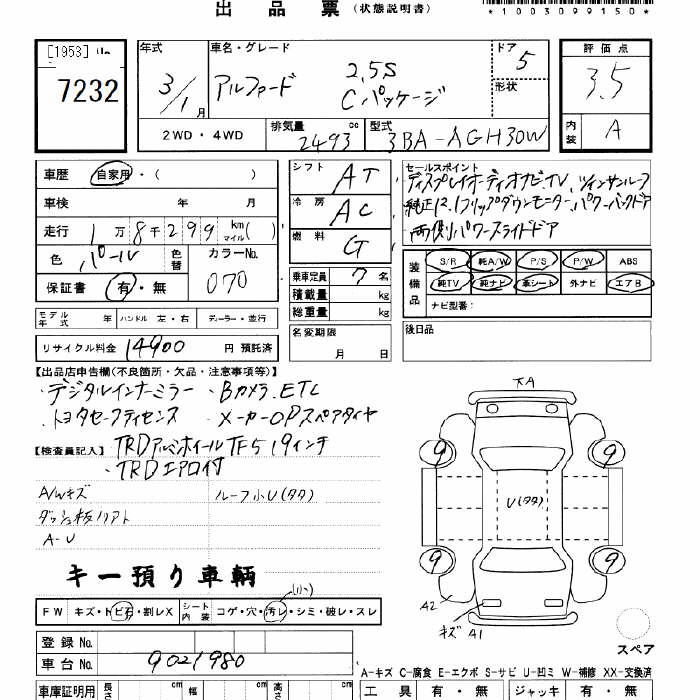 出 品 票 (状態説明書)
*1003099150*
[1953]
7232
年式
3/1月
車名・グレード
アルファード 2.5S
Cパッケージ
ドア 5
形状
評価点
3.5
内装 A
2WD・4WD
排気量 2493 cc
型式 3BA-AGH30W
車歴 自家用・( )
車検 年 月
走行 1万8千299 km マイル( )
色 パール 色替
カラーNo. 070
保証書 有・無
シフト AT
冷房 AC
燃料 G
乗車定員 7名
積載量 kg
総重量 kg
セールスポイント
・ディスプレイオーディオナビ.TV、ツインサンルーフ
・純正12.1フリップダウンモニター、パワーバックドア
・両側パワースライドドア
装備品
S/R 純A/W P/S P/W ABS
純TV 純ナビ 革シート 外ナビ エアB
ナビ型番:
モデル年式 年 ハンドル 左・右 ディーラー・並行
リサイクル料金 14900 円 預託済
名変期限
月 日
後日品
【出品店申告欄(不良箇所・欠品・注意事項等)】
・デジタルインナーミラー ・Bカメラ.ETC
・トヨタセーフティセンス ・メーカーOPスペアタイヤ
【検査員記入】 TRDアルミホイール TF5 19インチ
・TRDエアロ付
A/Wキズ ルーフ小U(タタ)
A-U
キー預り車輌
FW キズ・トビ石・割レX シート内装 コゲ・穴・汚レ・シミ・破レ・スレ
(小)
登録No.
車台No. 9021980
車庫証明用 長さ cm 幅 cm 高さ cm
9
9
U(タタ)
9
9
A2
キズ A1
スペア
A-キズ C-腐食 E-エクボ S-サビ U-凹ミ W-補修 XX-交換済
工具 有・無 ジャッキ 有・無